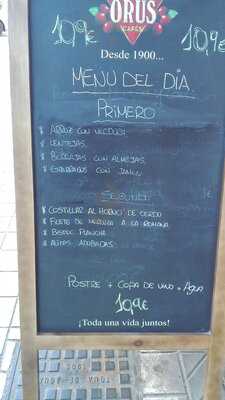 ORUS
CAFÉS
10,9€ 10,9€
Desde 1900...
MENU DEL DIA
PRIMERO
ARROZ CON VERDURAS
LENTEJAS.
CON ALMEJAS.
CON JAMON
SEGUNDO
COSTILLAR AL HORNO DE CERDO
FILETE DE MERLUZA A LA ROMANA
BISTEC PLANCHA
ALITAS ADOBADAS.
POSTRE + COPA DE VINO o AGUA
10,9€
¡Toda una vida juntos!